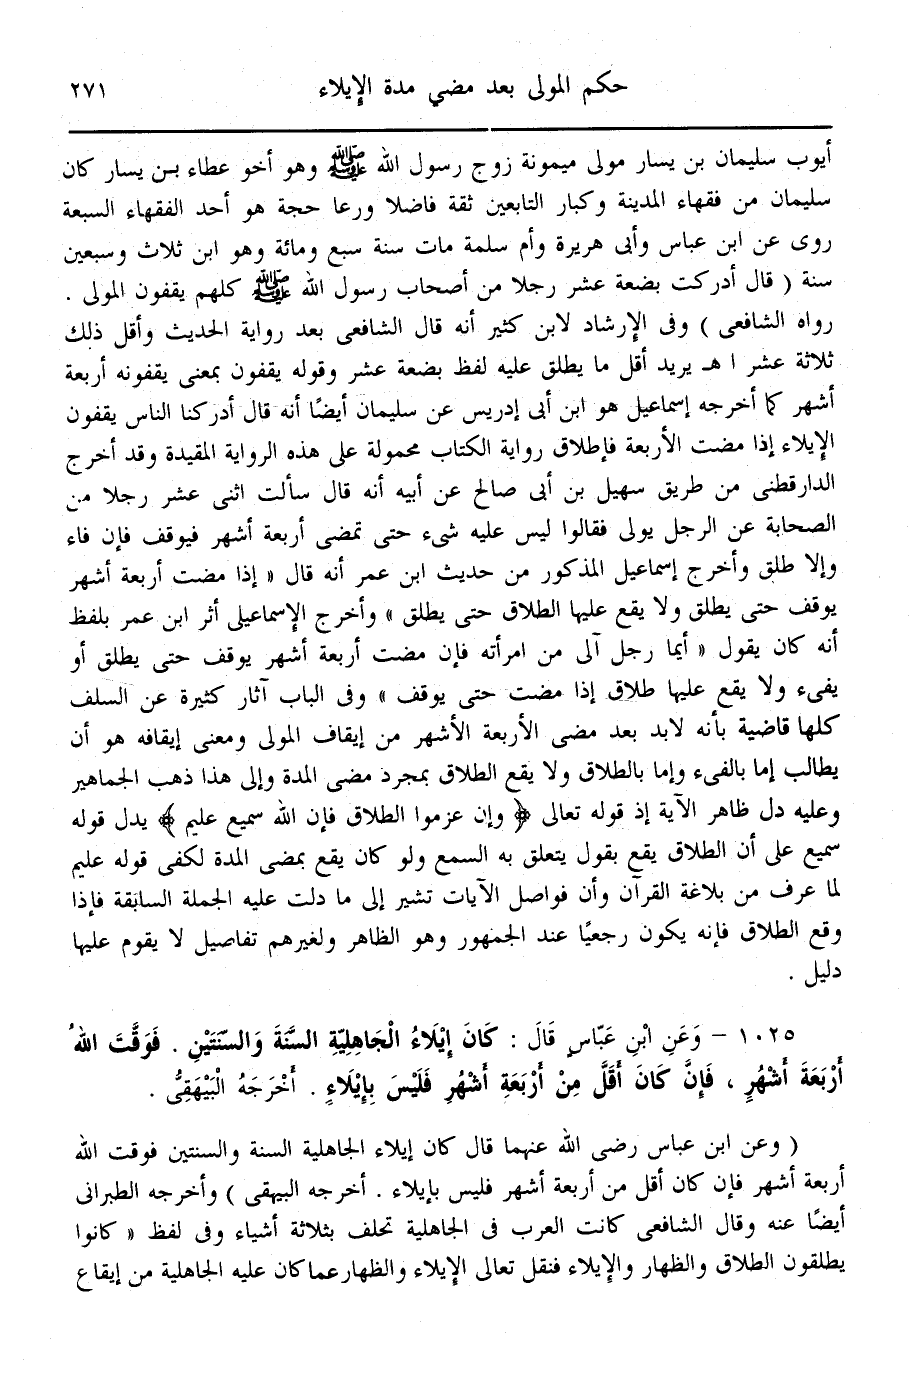 حكم المولى بعد مضي مدة الإيلاء ٢٧١
أيوب سليمان بن يسار مولى ميمونة زوج رسول الله ﷺ وهو أخو عطاء بن يسار كان
سليمان من فقهاء المدينة وكبار التابعين ثقة فاضلا ورعا حجة هو أحد الفقهاء السبعة
روى عن ابن عباس وأبى هريرة وأم سلمة مات سنة سبع ومائة وهو ابن ثلاث وسبعين
سنة ( قال أدركت بضعة عشر رجلا من أصحاب رسول الله ﷺ كلهم يقفون المولى .
رواه الشافعى ) وفى الإرشاد لابن كثير أنه قال الشافعى بعد رواية الحديث وأقل ذلك
ثلاثة عشر ا هـ يريد أقل ما يطلق عليه لفظ بضعة عشر وقوله يقفون بمعنى يقفونه أربعة
أشهر كما أخرجه إسماعيل هو ابن أبى إدريس عن سليمان أيضًا أنه قال أدركنا الناس يقفون
الإيلاء إذا مضت الأربعة فإطلاق رواية الكتاب محمولة على هذه الرواية المقيدة وقد أخرج
الدارقطنى من طريق سهيل بن أبى صالح عن أبيه أنه قال سألت اثنى عشر رجلا من
الصحابة عن الرجل يولى فقالوا ليس عليه شىء حتى تمضى أربعة أشهر فيوقف فإن فاء
وإلا طلق وأخرج إسماعيل المذكور من حديث ابن عمر أنه قال « إذا مضت أربعة أشهر
يوقف حتى يطلق ولا يقع عليها الطلاق حتى يطلق » وأخرج الإسماعيلى أثر ابن عمر بلفظ
أنه كان يقول « أيما رجل آلى من امرأته فإن مضت أربعة أشهر يوقف حتى يطلق أو
يفىء ولا يقع عليها طلاق إذا مضت حتى يوقف » وفى الباب آثار كثيرة عن السلف
كلها قاضية بأنه لابد بعد مضى الأربعة الأشهر من إيقاف المولى ومعنى إيقافه هو أن
يطالب إما بالفىء وإما بالطلاق ولا يقع الطلاق بمجرد مضى المدة وإلى هذا ذهب الجماهير
وعليه دل ظاهر الآية إذ قوله تعالى ﴿ وإن عزموا الطلاق فإن الله سميع عليم ﴾ يدل قوله
سميع على أن الطلاق يقع بقول يتعلق به السمع ولو كان يقع بمضى المدة لكفى قوله عليم
لما عرف من بلاغة القرآن وأن فواصل الآيات تشير إلى ما دلت عليه الجملة السابقة فإذا
وقع الطلاق فإنه يكون رجعيًا عند الجمهور وهو الظاهر ولغيرهم تفاصيل لا يقوم عليها
دليل .
١٠٢٥ – وَعَنِ ابْنِ عَبّاسٍ قَالَ : كَانَ إِيْلَاءُ الْجَاهِلِيّةِ السَّنَةَ وَالسّنَتَيْنِ . فَوَقَّتَ اللهُ
أَرْبَعَةَ أَشْهُرٍ ، فَإِنَّ كَانَ أَقَلَّ مِنْ أَرْبَعَةِ أَشْهُرِ فَلَيْسَ بِإِيْلَاءٍ . أَخْرَجَهُ الْبَيْهَقِىُّ .
( وعن ابن عباس رضى الله عنهما قال كان إيلاء الجاهلية السنة والسنتين فوقت الله
أربعة أشهر فإن كان أقل من أربعة أشهر فليس بإيلاء . أخرجه البيهقى ) وأخرجه الطبرانى
أيضًا عنه وقال الشافعى كانت العرب فى الجاهلية تحلف بثلاثة أشياء وفى لفظ « كانوا
يطلقون الطلاق والظهار والإيلاء فنقل تعالى الإيلاء والظهار عما كان عليه الجاهلية من إيقاع